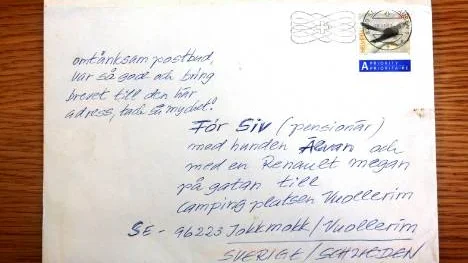 A PRIORITY
PRIORITAIRE
omtänksam postbud,
var så god och bring
brevet till den här
adress, tack så mycket!
För Siv (pensionär)
med hunden Älvan och
med en Renault megan
på gatan till
camping platsen Vuollerim
SE - 96223 Jokkmokk/Vuollerim
SVERIGE/SCHWEDEN